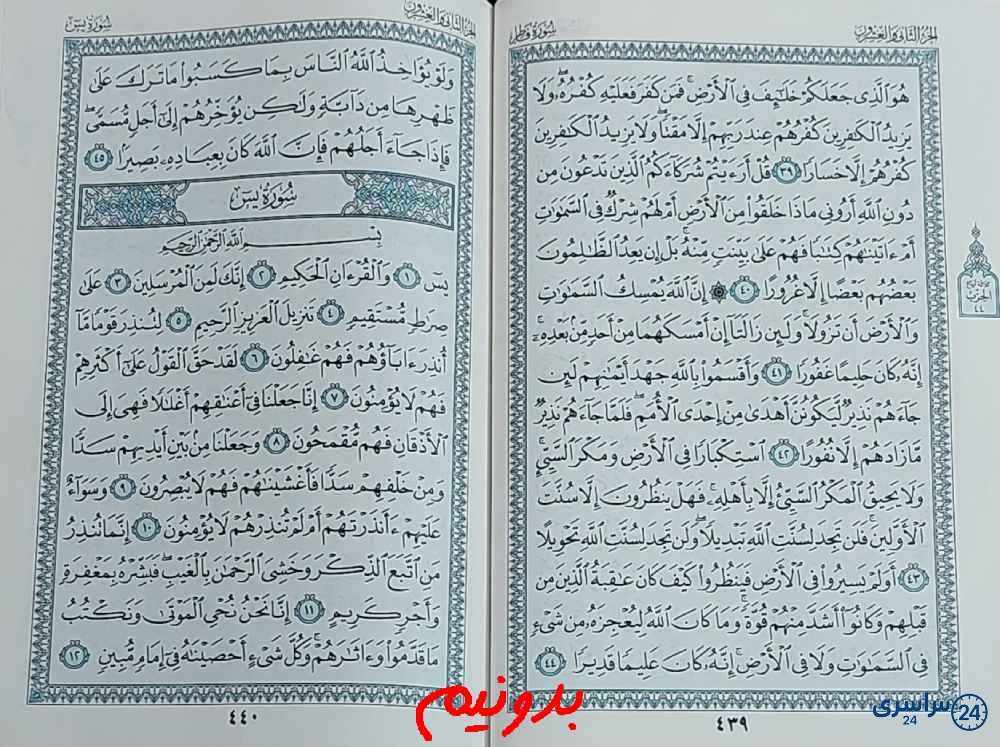 الجزء الثاني والعشرون
سورة فاطر
هُوَ ٱلَّذِى جَعَلَكُمْ خَلَٰٓئِفَ فِى ٱلْأَرْضِ ۚ فَمَن كَفَرَ فَعَلَيْهِ كُفْرُهُۥ ۖ وَلَا
يَزِيدُ ٱلْكَٰفِرِينَ كُفْرُهُمْ عِندَ رَبِّهِمْ إِلَّا مَقْتًا ۖ وَلَا يَزِيدُ ٱلْكَٰفِرِينَ
كُفْرُهُمْ إِلَّا خَسَارًا ٣٩ قُلْ أَرَءَيْتُمْ شُرَكَآءَكُمُ ٱلَّذِينَ تَدْعُونَ مِن
دُونِ ٱللَّهِ أَرُونِى مَاذَا خَلَقُوا۟ مِنَ ٱلْأَرْضِ أَمْ لَهُمْ شِرْكٌ فِى ٱلسَّمَٰوَٰتِ
أَمْ ءَاتَيْنَٰهُمْ كِتَٰبًا فَهُمْ عَلَىٰ بَيِّنَتٍ مِّنْهُ ۚ بَلْ إِن يَعِدُ ٱلظَّٰلِمُونَ
بَعْضُهُم بَعْضًا إِلَّا غُرُورًا ٤٠ ۞ إِنَّ ٱللَّهَ يُمْسِكُ ٱلسَّمَٰوَٰتِ
وَٱلْأَرْضَ أَن تَزُولَا ۚ وَلَئِن زَالَتَآ إِنْ أَمْسَكَهُمَا مِنْ أَحَدٍ مِّنۢ بَعْدِهِۦٓ ۚ
إِنَّهُۥ كَانَ حَلِيمًا غَفُورًا ٤١ وَأَقْسَمُوا۟ بِٱللَّهِ جَهْدَ أَيْمَٰنِهِمْ لَئِن
جَآءَهُمْ نَذِيرٌ لَّيَكُونُنَّ أَهْدَىٰ مِنْ إِحْدَى ٱلْأُمَمِ ۖ فَلَمَّا جَآءَهُمْ نَذِيرٌ
مَّا زَادَهُمْ إِلَّا نُفُورًا ٤٢ ٱسْتِكْبَارًا فِى ٱلْأَرْضِ وَمَكْرَ ٱلسَّيِّئِ ۚ
وَلَا يَحِيقُ ٱلْمَكْرُ ٱلسَّيِّئُ إِلَّا بِأَهْلِهِۦ ۚ فَهَلْ يَنظُرُونَ إِلَّا سُنَّتَ
ٱلْأَوَّلِينَ ۚ فَلَن تَجِدَ لِسُنَّتِ ٱللَّهِ تَبْدِيلًا ۖ وَلَن تَجِدَ لِسُنَّتِ ٱللَّهِ تَحْوِيلًا
٤٣ أَوَلَمْ يَسِيرُوا۟ فِى ٱلْأَرْضِ فَيَنظُرُوا۟ كَيْفَ كَانَ عَٰقِبَةُ ٱلَّذِينَ مِن
قَبْلِهِمْ وَكَانُوٓا۟ أَشَدَّ مِنْهُمْ قُوَّةً ۚ وَمَا كَانَ ٱللَّهُ لِيُعْجِزَهُۥ مِن شَىْءٍ
فِى ٱلسَّمَٰوَٰتِ وَلَا فِى ٱلْأَرْضِ ۚ إِنَّهُۥ كَانَ عَلِيمًا قَدِيرًا ٤٤
٤٣٩
الحزب
٤٤
الجزء الثاني والعشرون
سورة يس
وَلَوْ يُؤَاخِذُ ٱللَّهُ ٱلنَّاسَ بِمَا كَسَبُوا۟ مَا تَرَكَ عَلَىٰ
ظَهْرِهَا مِن دَآبَّةٍ وَلَٰكِن يُؤَخِّرُهُمْ إِلَىٰٓ أَجَلٍ مُّسَمًّى ۖ
فَإِذَا جَآءَ أَجَلُهُمْ فَإِنَّ ٱللَّهَ كَانَ بِعِبَادِهِۦ بَصِيرًۢا ٤٥
سورة يس
بِسْمِ ٱللَّهِ ٱلرَّحْمَٰنِ ٱلرَّحِيمِ
يسٓ ١ وَٱلْقُرْءَانِ ٱلْحَكِيمِ ٢ إِنَّكَ لَمِنَ ٱلْمُرْسَلِينَ ٣ عَلَىٰ
صِرَٰطٍ مُّسْتَقِيمٍ ٤ تَنزِيلَ ٱلْعَزِيزِ ٱلرَّحِيمِ ٥ لِتُنذِرَ قَوْمًا مَّآ
أُنذِرَ ءَابَآؤُهُمْ فَهُمْ غَٰفِلُونَ ٦ لَقَدْ حَقَّ ٱلْقَوْلُ عَلَىٰٓ أَكْثَرِهِمْ
فَهُمْ لَا يُؤْمِنُونَ ٧ إِنَّا جَعَلْنَا فِىٓ أَعْنَٰقِهِمْ أَغْلَٰلًا فَهِىَ إِلَى
ٱلْأَذْقَانِ فَهُم مُّقْمَحُونَ ٨ وَجَعَلْنَا مِنۢ بَيْنِ أَيْدِيهِمْ سَدًّا
وَمِنْ خَلْفِهِمْ سَدًّا فَأَغْشَيْنَٰهُمْ فَهُمْ لَا يُبْصِرُونَ ٩ وَسَوَآءٌ
عَلَيْهِمْ ءَأَنذَرْتَهُمْ أَمْ لَمْ تُنذِرْهُمْ لَا يُؤْمِنُونَ ١٠ إِنَّمَا تُنذِرُ
مَنِ ٱتَّبَعَ ٱلذِّكْرَ وَخَشِىَ ٱلرَّحْمَٰنَ بِٱلْغَيْبِ ۖ فَبَشِّرْهُ بِمَغْفِرَةٍ
وَأَجْرٍ كَرِيمٍ ١١ إِنَّا نَحْنُ نُحْىِ ٱلْمَوْتَىٰ وَنَكْتُبُ
مَا قَدَّمُوا۟ وَءَاثَٰرَهُمْ ۚ وَكُلَّ شَىْءٍ أَحْصَيْنَٰهُ فِىٓ إِمَامٍ مُّبِينٍ ١٢
٤٤٠
بدونیم
سراسری
24
24